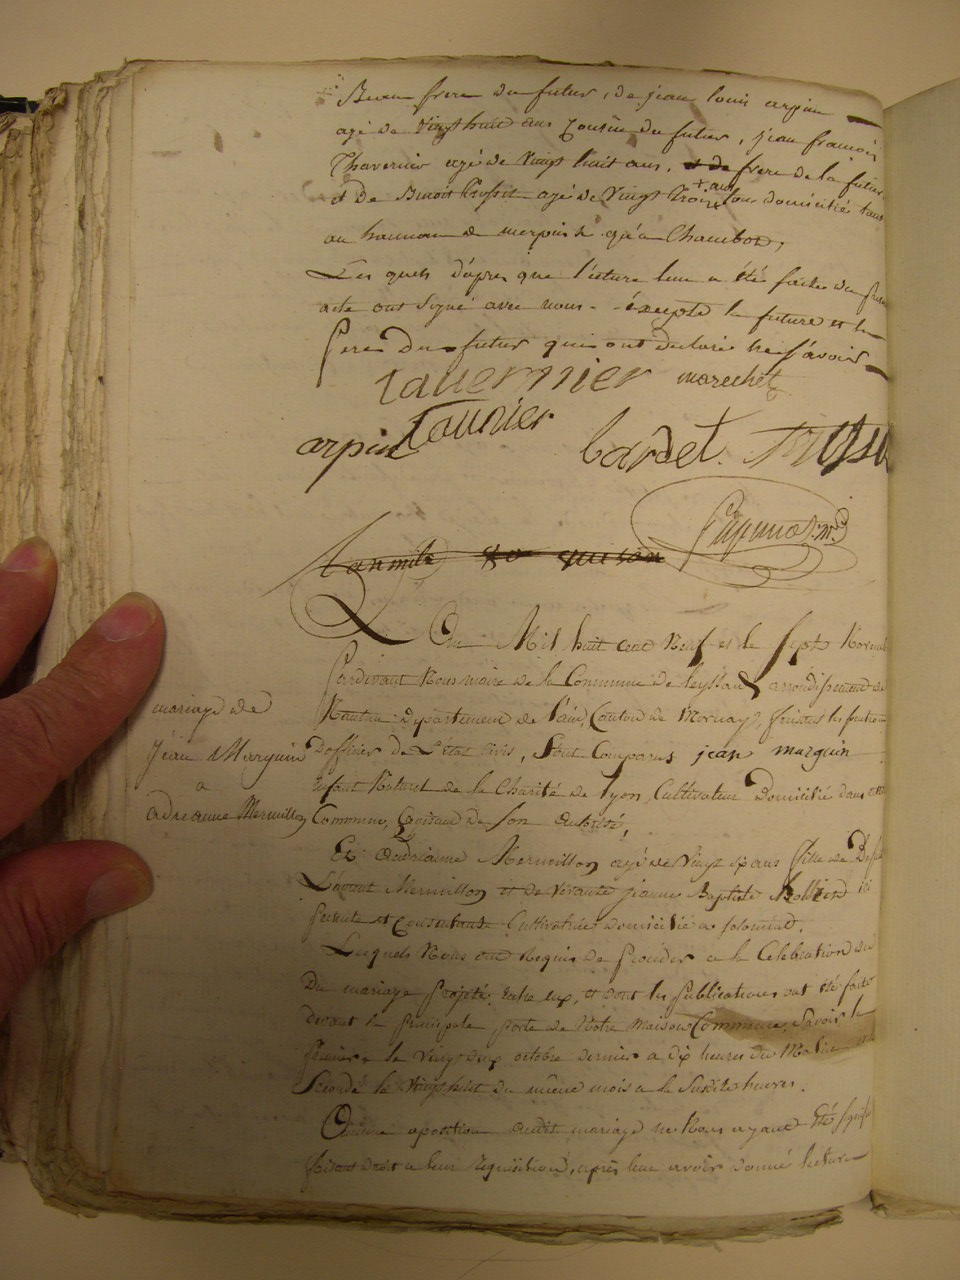 Beau frere du futur, de jean louis arpin
agé de vingt huit ans Cousin du futur, jean françois
Thavernier agé de Vingt huit ans, et de frere de la future
et de Benoit agé de Vingt trois ans tous domiciliés tant
au hameau de merpuis qu'a Chambod,
Les quels d'apres que lecture leur a été faite du present
acte ont Signé avec nous - excepté la future et le
pere du futur qui ont declaré ne Savoir
tavernier marechet
arpin taunier bardet.
L'an mil huit cent Neuf et le Sept Novembre
Pardevant Nous maire de la Commune de leyssard arrondissement de
Nantua departement de l'ain, Canton de Mornay, faisant les fonctions
D'officier de L'état Civil, Sont Comparus jean marguin
mariage de
Jean Marguin
a
adrianne Mermillon
enfant Naturel de la Charité de Lyon, Cultivateur Domicilié dans cette
Commune, Joissant de Son autorité,
Et adrianne Mermillon agé de Vingt ans fille de Defunt
Mermillon et de Vivante jeanne Baptiste ici
presente et Consentante Cultivatrice domicilié a Solomiat.
Lesquels Nous ont Requis de proceder a la Celebration du
Du mariage projeté entre eux, et dont les publications ont été faites
devant la principale porte de Notre maison Commune, Savoir la
premiere le Vingt deux octobre dernier a dix heures du Matin et la
Seconde le Vingt neuf du même mois a la Susdite heure.
Aucune oposition audit mariage ne Nous ayant été Signifié
faisant droit a leur requisition, après leur avoir donné lecture